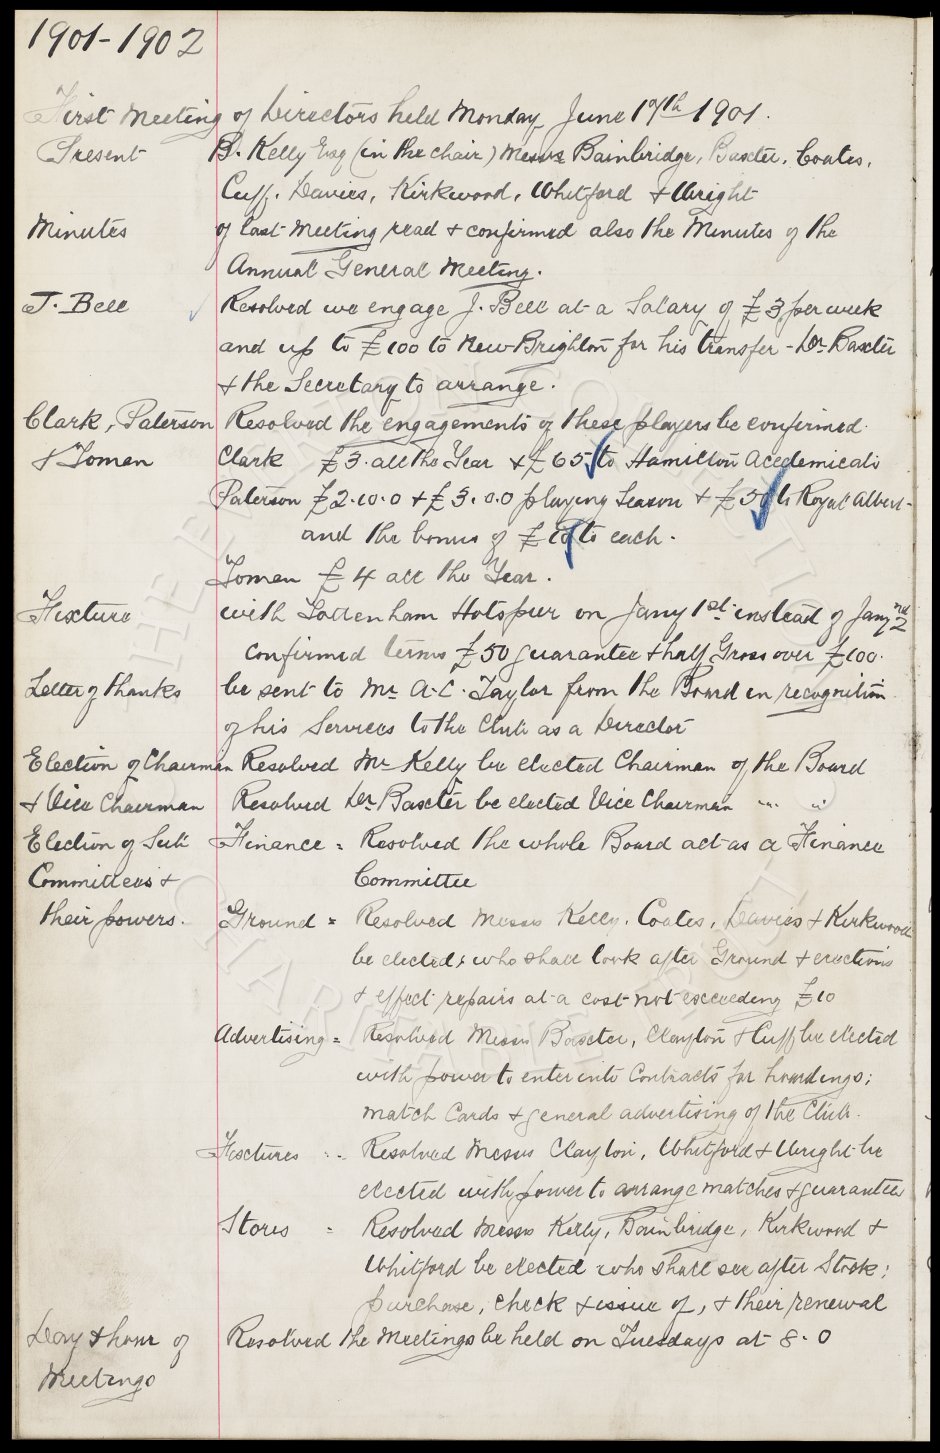 1901-1902
First Meeting of Directors held Monday June 17th 1901.
Present B. Kelly Esq (in the chair) Messrs Bainbridge, Baxter, Coates,
Cuff, Davies, Kirkwood, Whitford & Wright
Minutes of last meeting read & confirmed also the Minutes of the
Annual General Meeting.
J. Bell Resolved we engage J. Bell at a Salary of £3 per week
and up to £100 to New Brighton for his transfer - Dr. Baxter
& the Secretary to arrange.
Clark, Paterson Resolved the engagements of these players be confirmed.
& Toman Clark £3. all the Year & £65 to Hamilton Accdemicals
Paterson £2.10.0 & £3.0.0 playing Season & £50 to Royal Albert-
and the bonus of £10 to each.
Toman £4 all the Year.
Fixture with Tottenham Hotspur on Jany 1st instead of Jany 2nd
confirmed terms £50 guarantee & half Gross over £100.
Letter of thanks be sent to Mr. A.C. Taylor from the Board in recognition
of his Services to the Club as a Director
Election of Chairman Resolved Mr Kelly be elected Chairman of the Board
& Vice Chairman Resolved Dr. Baxter be elected Vice Chairman " "
Election of Sub Finance = Resolved the whole Board act as a Finance
Committees & Committee
their powers. Ground = Resolved Messrs Kelly, Coates, Davies & Kirkwood
be elected; who shall look after Ground & erections
& effect repairs at a cost not exceeding £10
Advertising = Resolved Messrs Baxter, Clayton & Cuff be elected
with power to enter into Contracts for hoardings;
match Cards & general advertising of the Club.
Fixtures = Resolved Messrs Clayton, Whitford & Wright be
elected with power to arrange matches & guarantees
Stores = Resolved Messrs Kelly, Bainbridge, Kirkwood &
Whitford be elected who shall see after Stock;
purchase, check & issue of, & their renewal
Day & hour of Resolved the Meetings be held on Tuesdays at 8.0
Meetings